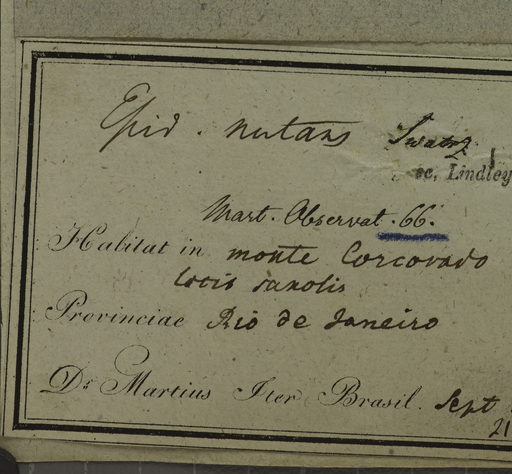 Epid. nutans Swartz
ec. Lindley
Mart. Observat. 66.
Habitat in monte Corcovado
locis saxosis
Provinciae Rio de Janeiro
Dr Martius Iter Brasil. Sept
21